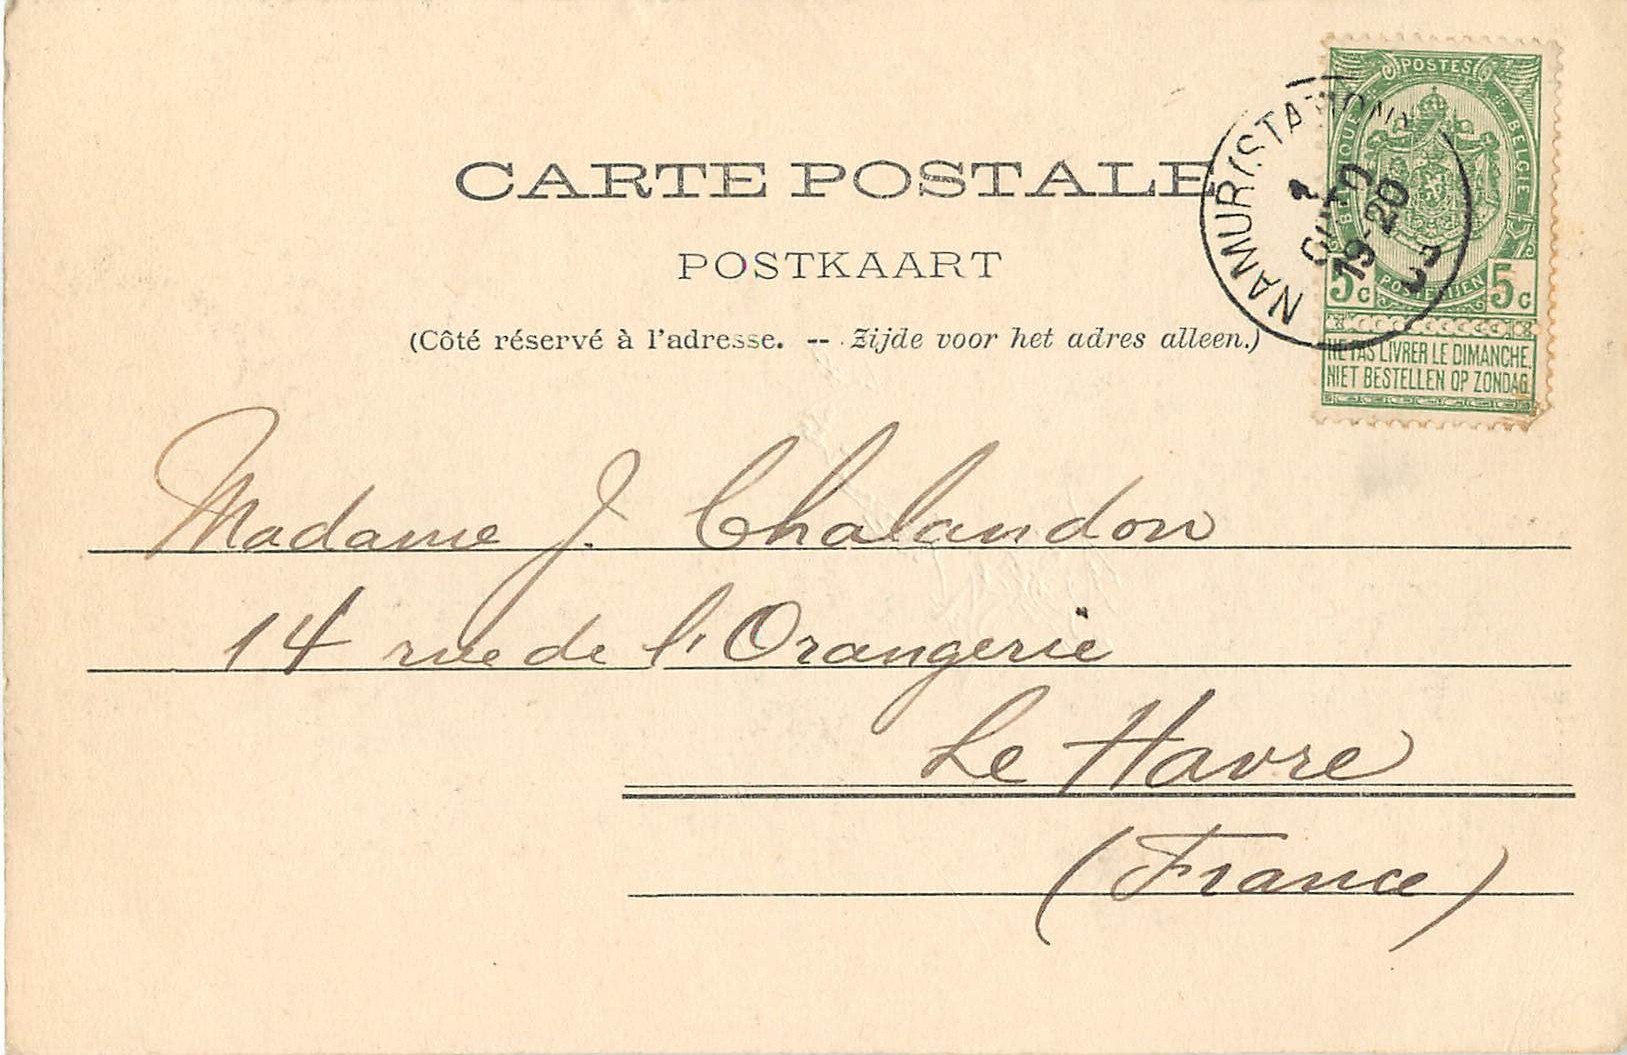 CARTE POSTALE
POSTKAART
(Côté réservé à l'adresse. -- Zijde voor het adres alleen.)
POSTES
BELGIQUE
BELGIE
POSTERIJEN
5c 5c
NE PAS LIVRER LE DIMANCHE.
NIET BESTELLEN OP ZONDAG.
NAMUR (STATION)
19-20
Madame J. Chalandon
14 rue de l'Orangerie
Le Havre
(France)